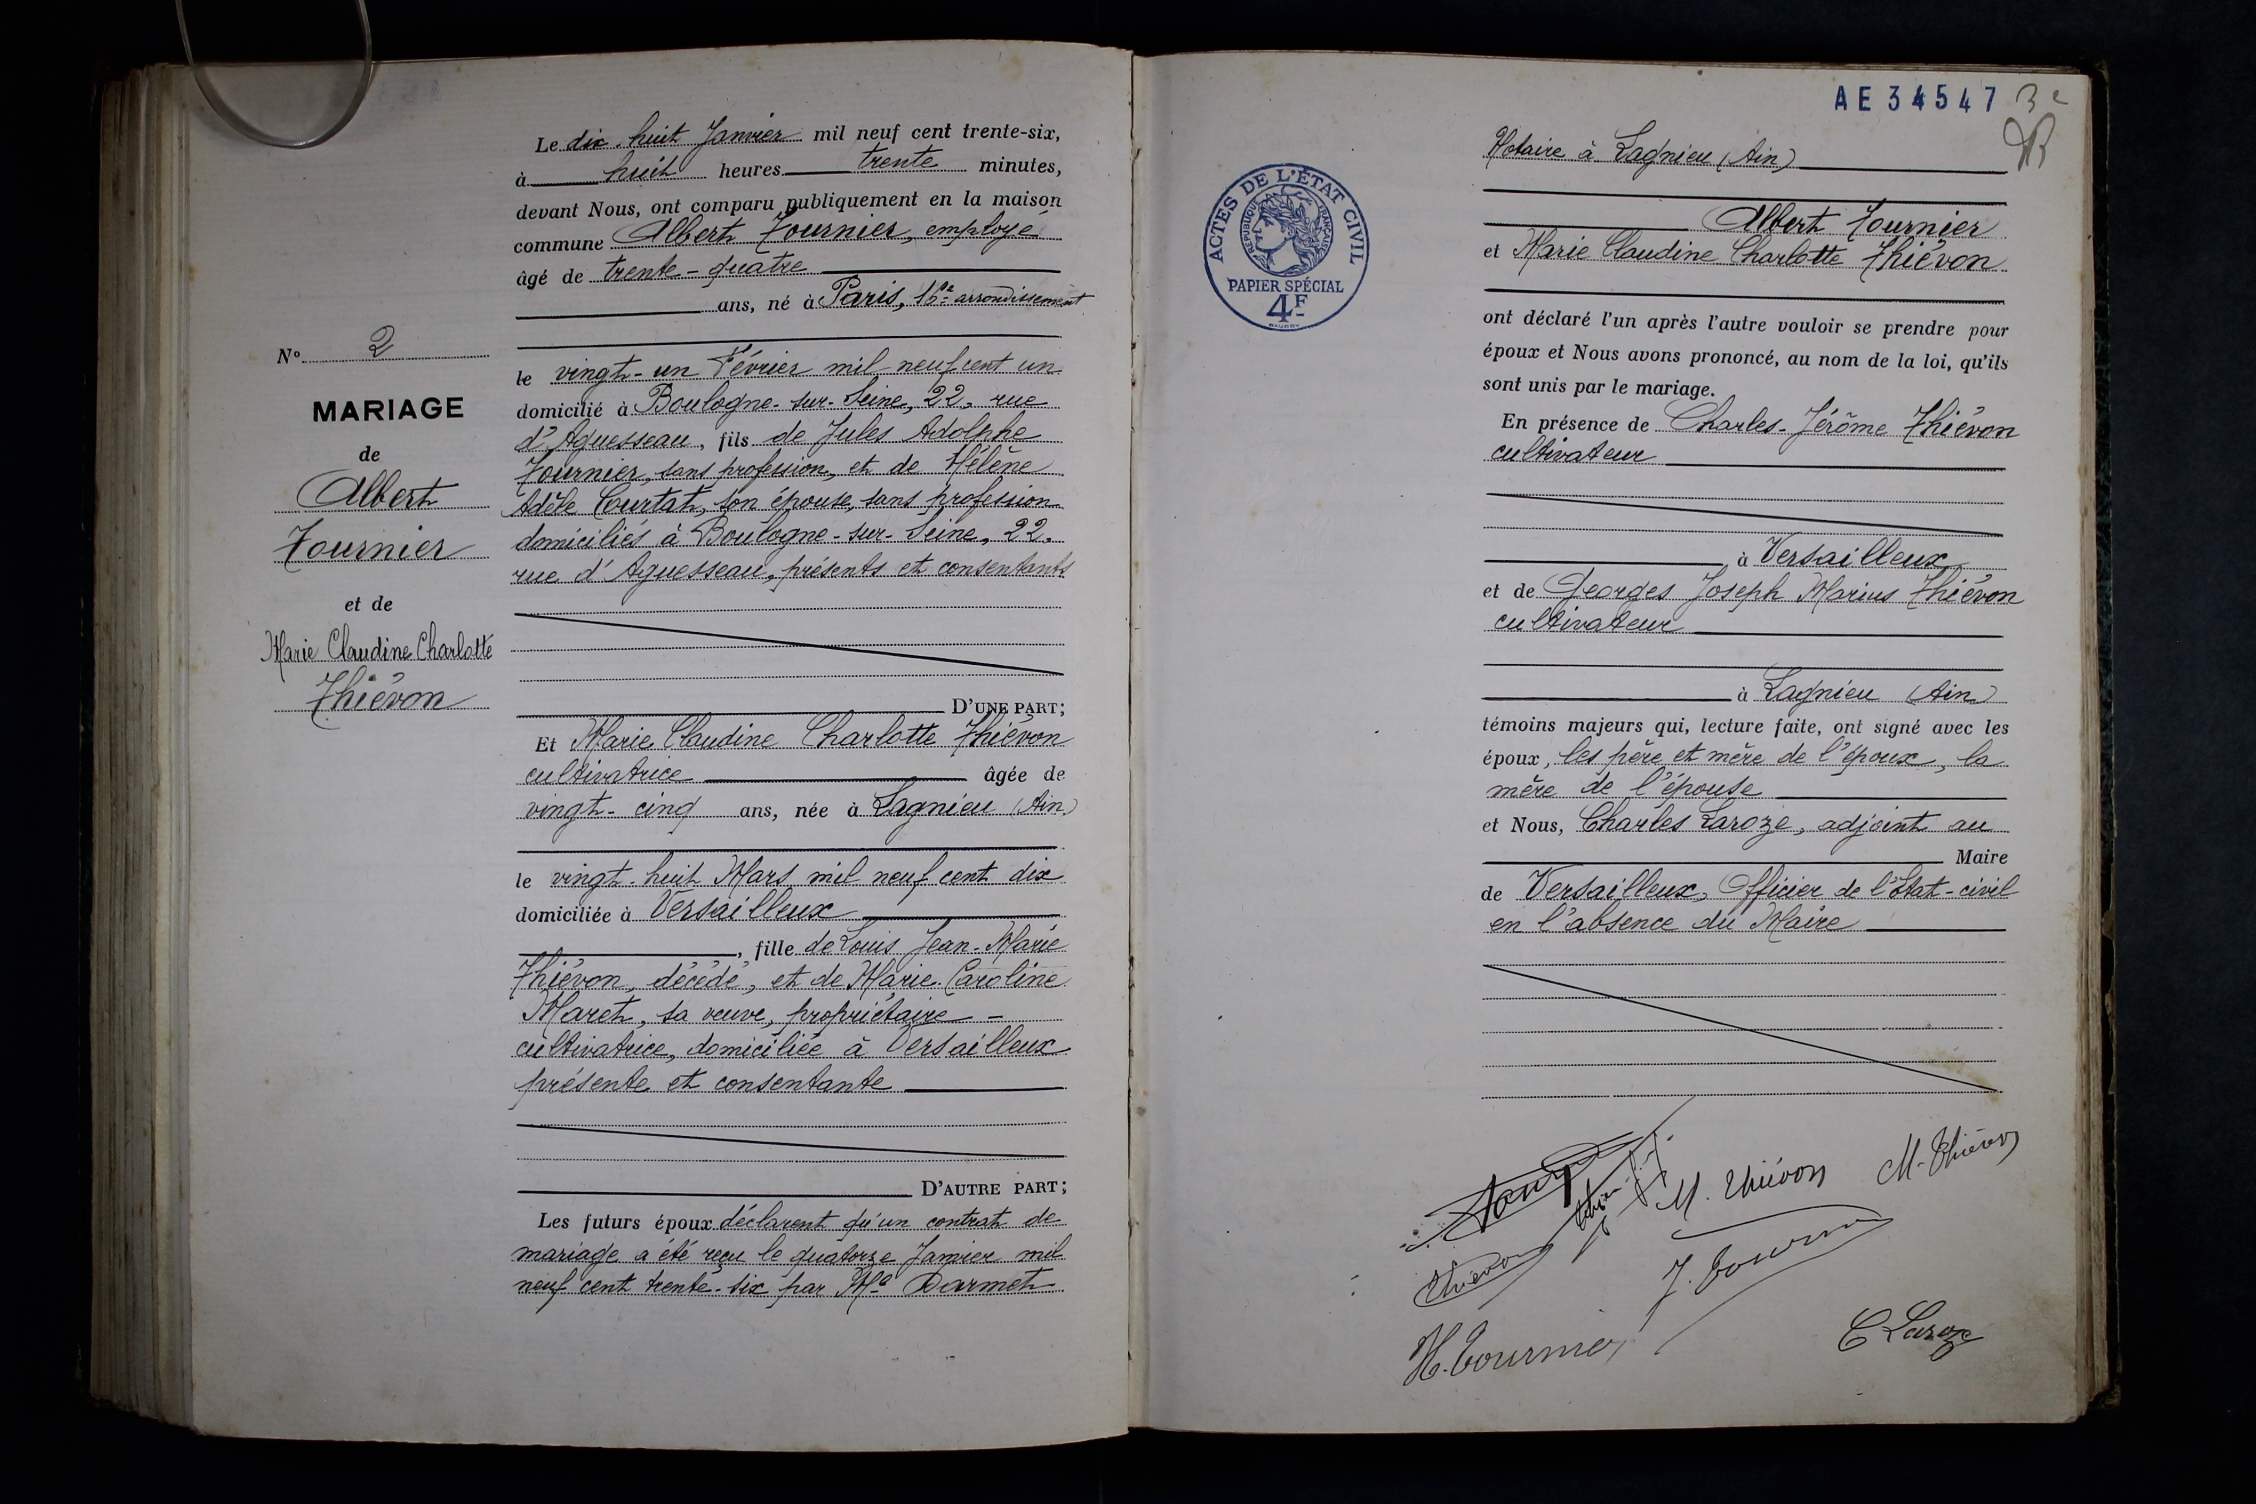 N° 2
MARIAGE
de
Albert
Fournier
et de
Marie Claudine Charlotte
Thiévon
Le dix-huit Janvier mil neuf cent trente-six,
à huit heures trente minutes,
devant Nous, ont comparu publiquement en la maison
commune Albert Fournier, employé
âgé de trente-quatre
ans, né à Paris, arrondissement
le vingt-un Février mil neuf cent un
domicilié à Boulogne-sur-Seine, 22, rue
d'Aguesseau, fils de Jules Adolphe
Fournier, sans profession, et de Hélène
Adèle Courtat, son épouse, sans profession
domiciliés à Boulogne-sur-Seine, 22,
rue d'Aguesseau, présents et consentants
D'UNE PART;
Et Marie Claudine Charlotte Thiévon
cultivatrice âgée de
vingt-cinq ans, née à Lagnieu (Ain)
le vingt-huit Mars mil neuf cent dix
domiciliée à Versailleux
, fille de Louis Jean-Marie
Thiévon, décédé, et de Marie Caroline
Maret, sa veuve, propriétaire-
cultivatrice, domiciliée à Versailleux
présente et consentante
D'AUTRE PART;
Les futurs époux déclarent qu'un contrat de
mariage a été reçu le quatorze Janvier mil
neuf cent trente-six par Me Darmet
AE34547
Notaire à Lagnieu (Ain)
Albert Fournier
et Marie Claudine Charlotte Thiévon
ont déclaré l'un après l'autre vouloir se prendre pour
époux et Nous avons prononcé, au nom de la loi, qu'ils
sont unis par le mariage.
En présence de Charles-Jérôme Thiévon
cultivateur
à Versailleux
et de Georges Joseph Marius Thiévon
cultivateur
à Lagnieu (Ain)
témoins majeurs qui, lecture faite, ont signé avec les
époux, les père et mère de l'époux, la
mère de l'épouse
et Nous, Charles Laroze, adjoint au
Maire
de Versailleux, Officier de l'Etat-civil
en l'absence du Maire
ACTES DE L'ÉTAT CIVIL
RÉPUBLIQUE FRANÇAISE
PAPIER SPÉCIAL
4F
M. Thiévon
M. Thiévon
Thiévon
J. Fournier
H. Fournier
C Laroze